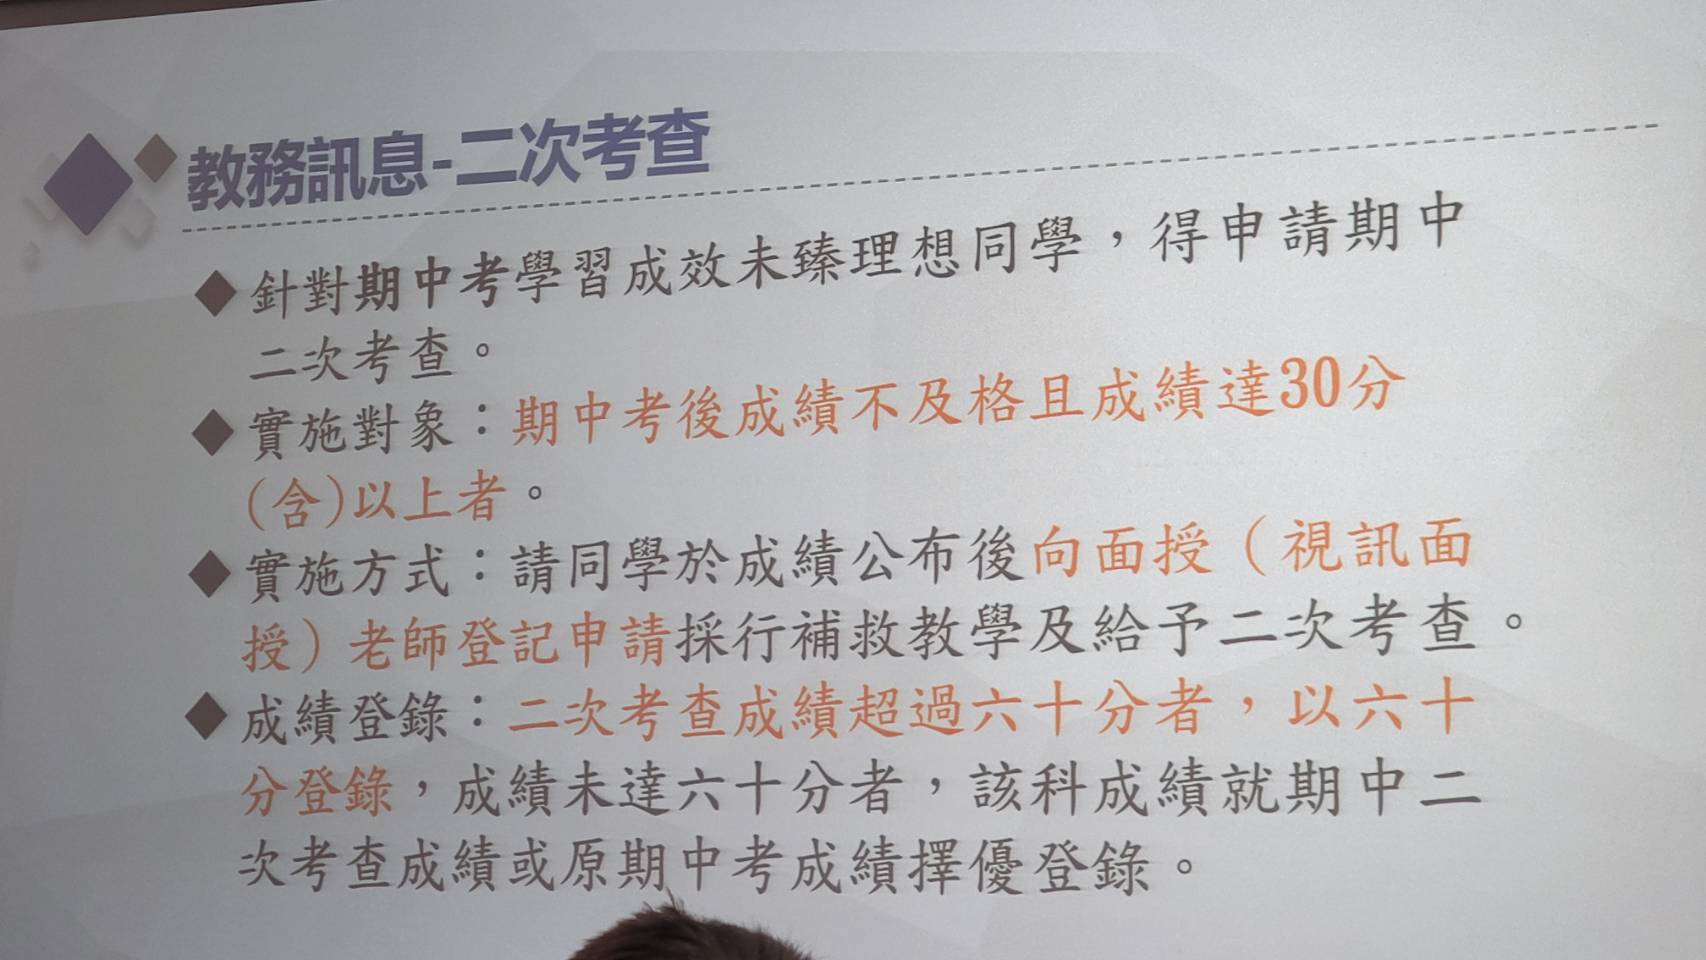 教務訊息-二次考查
針對期中考學習成效未臻理想同學，得申請期中
二次考查。
實施對象：期中考後成績不及格且成績達30分
(含)以上者。
實施方式：請同學於成績公布後向面授（視訊面
授）老師登記申請採行補救教學及給予二次考查。
成績登錄：二次考查成績超過六十分者，以六十
分登錄，成績未達六十分者，該科成績就期中二
次考查成績或原期中考成績擇優登錄。